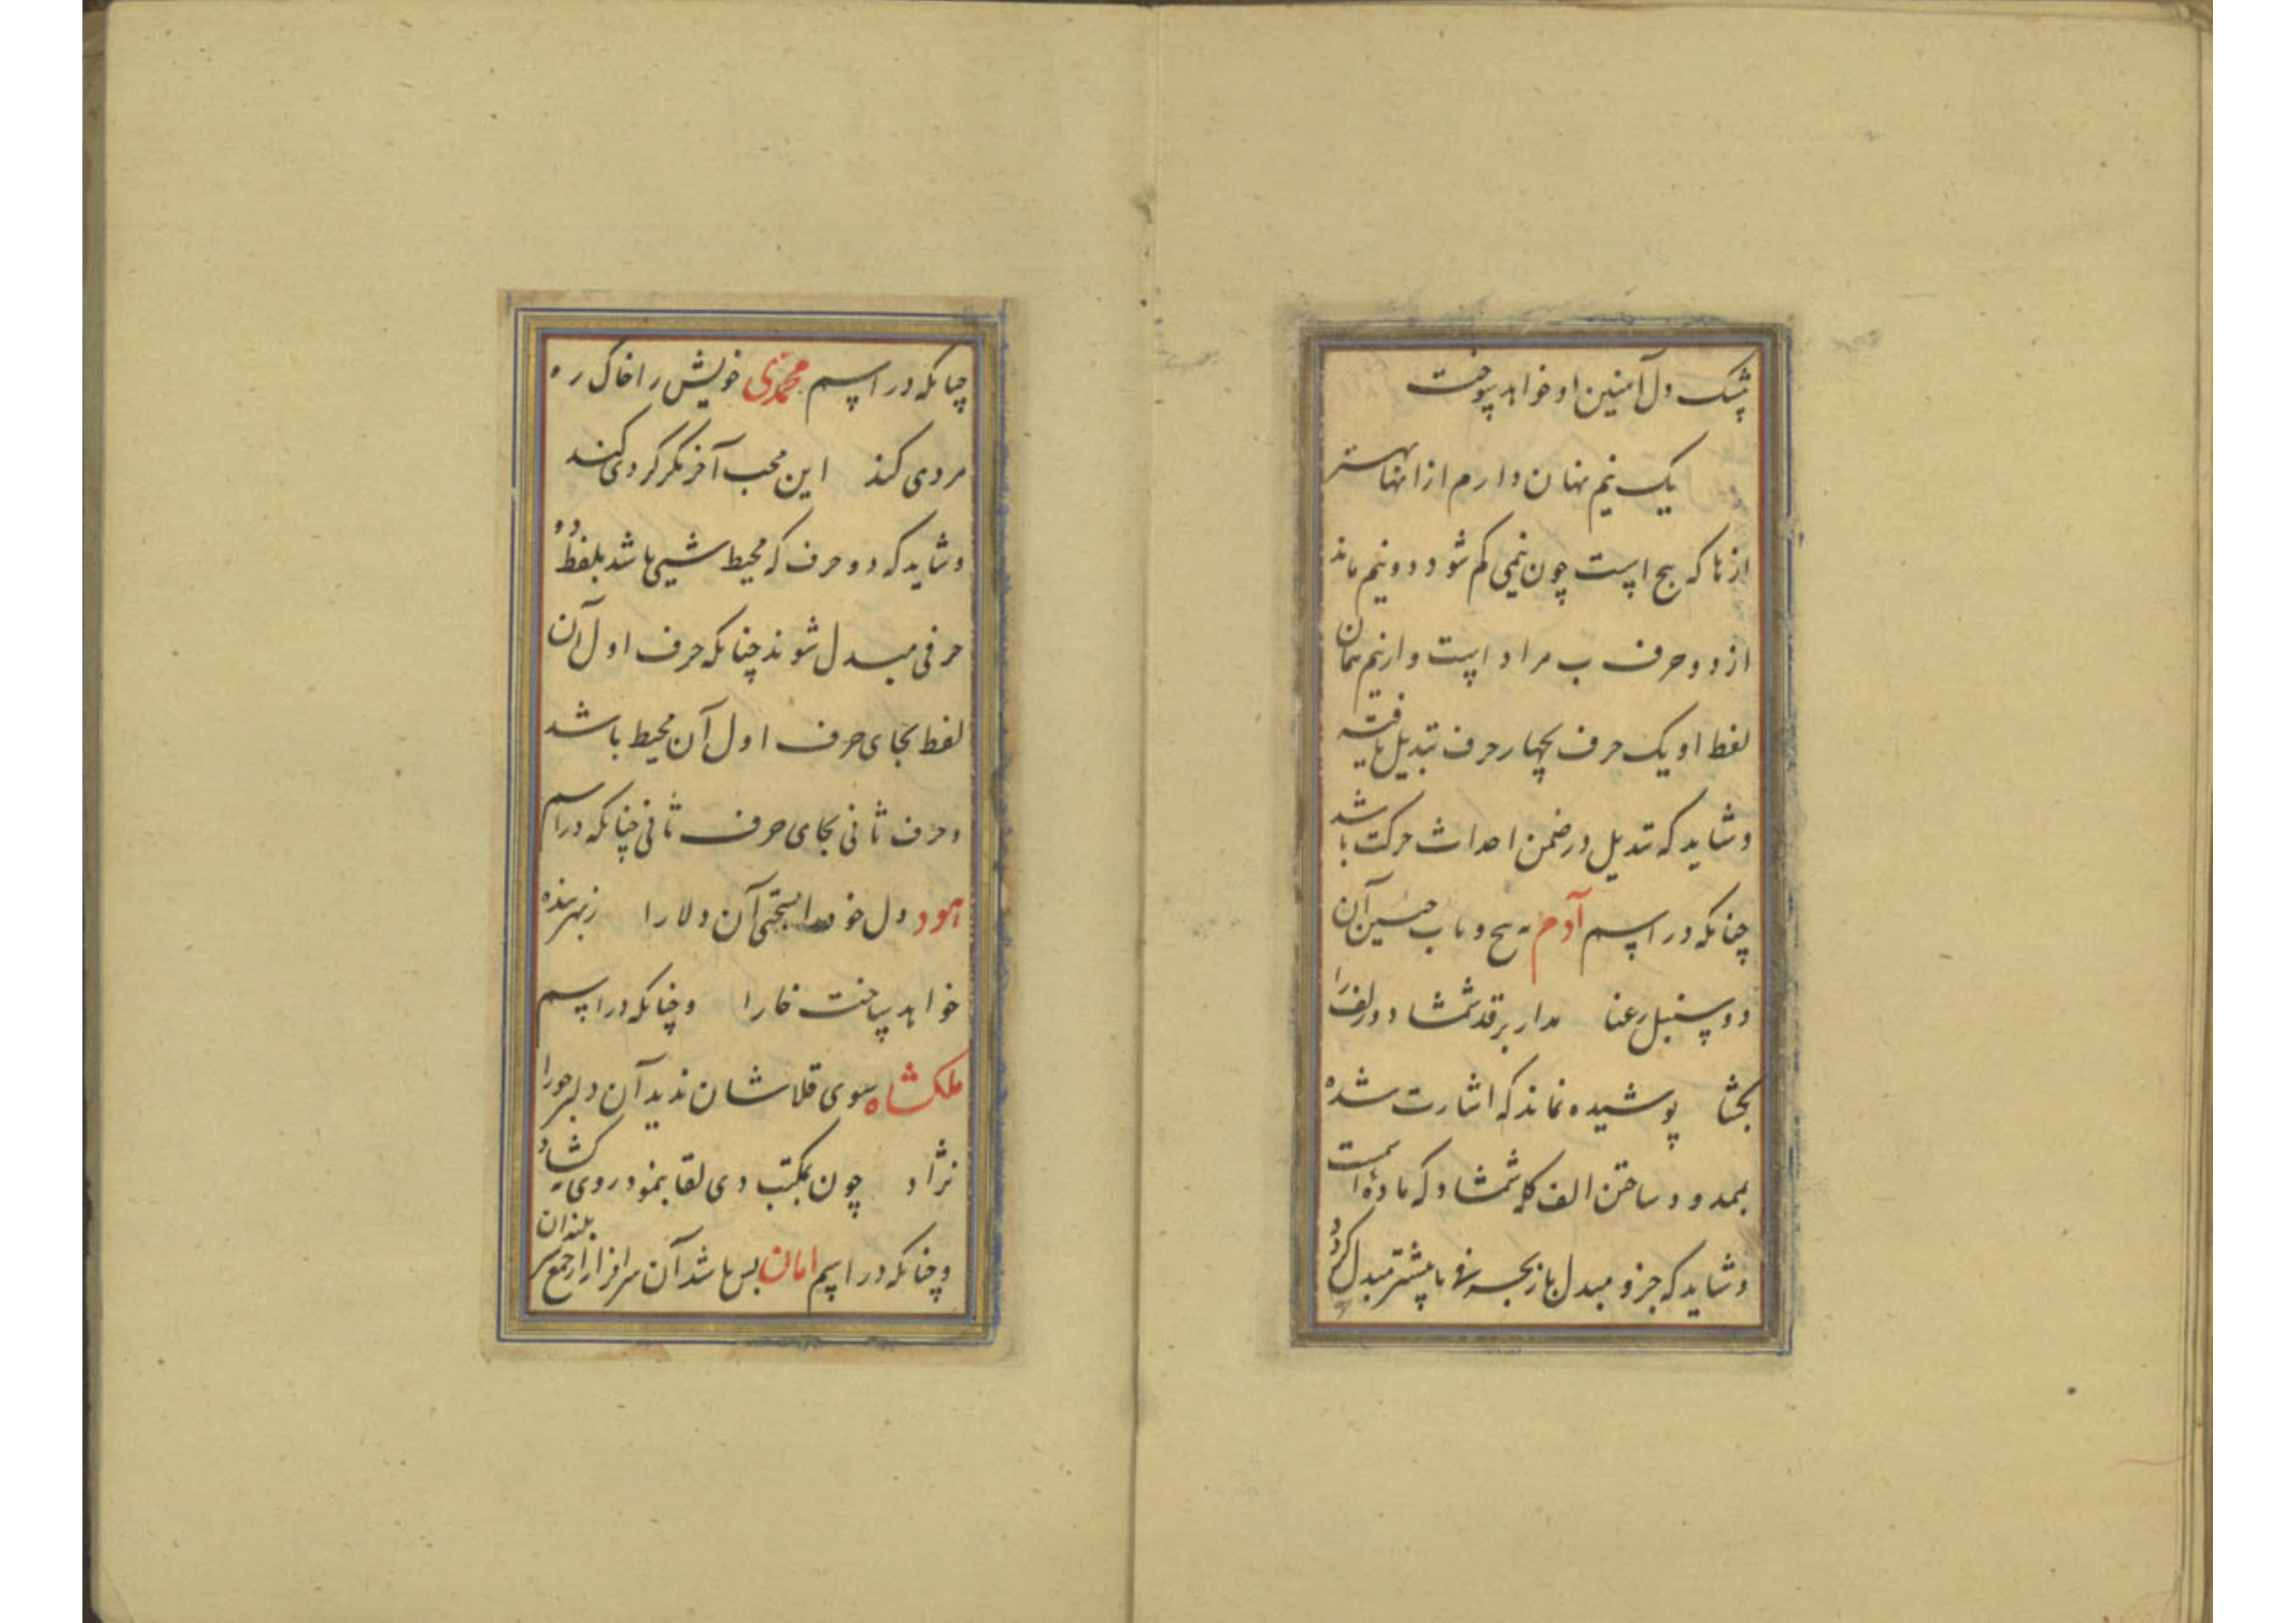 پشک دل آمنین او خواهد سوخت
یک نیم نهان دارم از انها بهتر
از ها که پنج است چون نیمی کم شود دو و نیم ماند
از دو حرف ب مراد است و از نیم همان
لفظ او یک حرف بچهار حرف تبدیل یافته
و شاید که تبدیل در ضمن احداث حرکت باشد
چنانکه در اسم آدم به پیچ و تاب حسین آن
دو سنبل رعنا مدار بر قد شمشاد و زلف را
بگشا پوشیده نماند که اشارت شده
بممدود ساختن الف کلمه شمشاد که ماده است
و شاید که جزو مبدل باز بحرفی یا بیشتر مبدل گردد
چنانکه در اسم محمدی خویش را خاک ره
مردی کند این محب آخر مگر کردی کند
و شاید که دو حرف که محیط شیی باشد بلفظ دو
حرفی مبدل شوند چنانکه حرف اول آن
لفظ بجای حرف اول آن محیط باشد
و حرف ثانی بجای حرف ثانی چنانکه در اسم
اهود دل خود را بسختی آن دلارا زبهر بنده
خواهد ساخت خارا و چنانکه در اسم
ملکشاه سوی قلاشان ندید آن دلبر حورا
نژاد چون بمکتب دی لقا بنمود روی کشاد
و چنانکه در اسم امان بس باشد آن سرافراز از جمع سر
بلندان